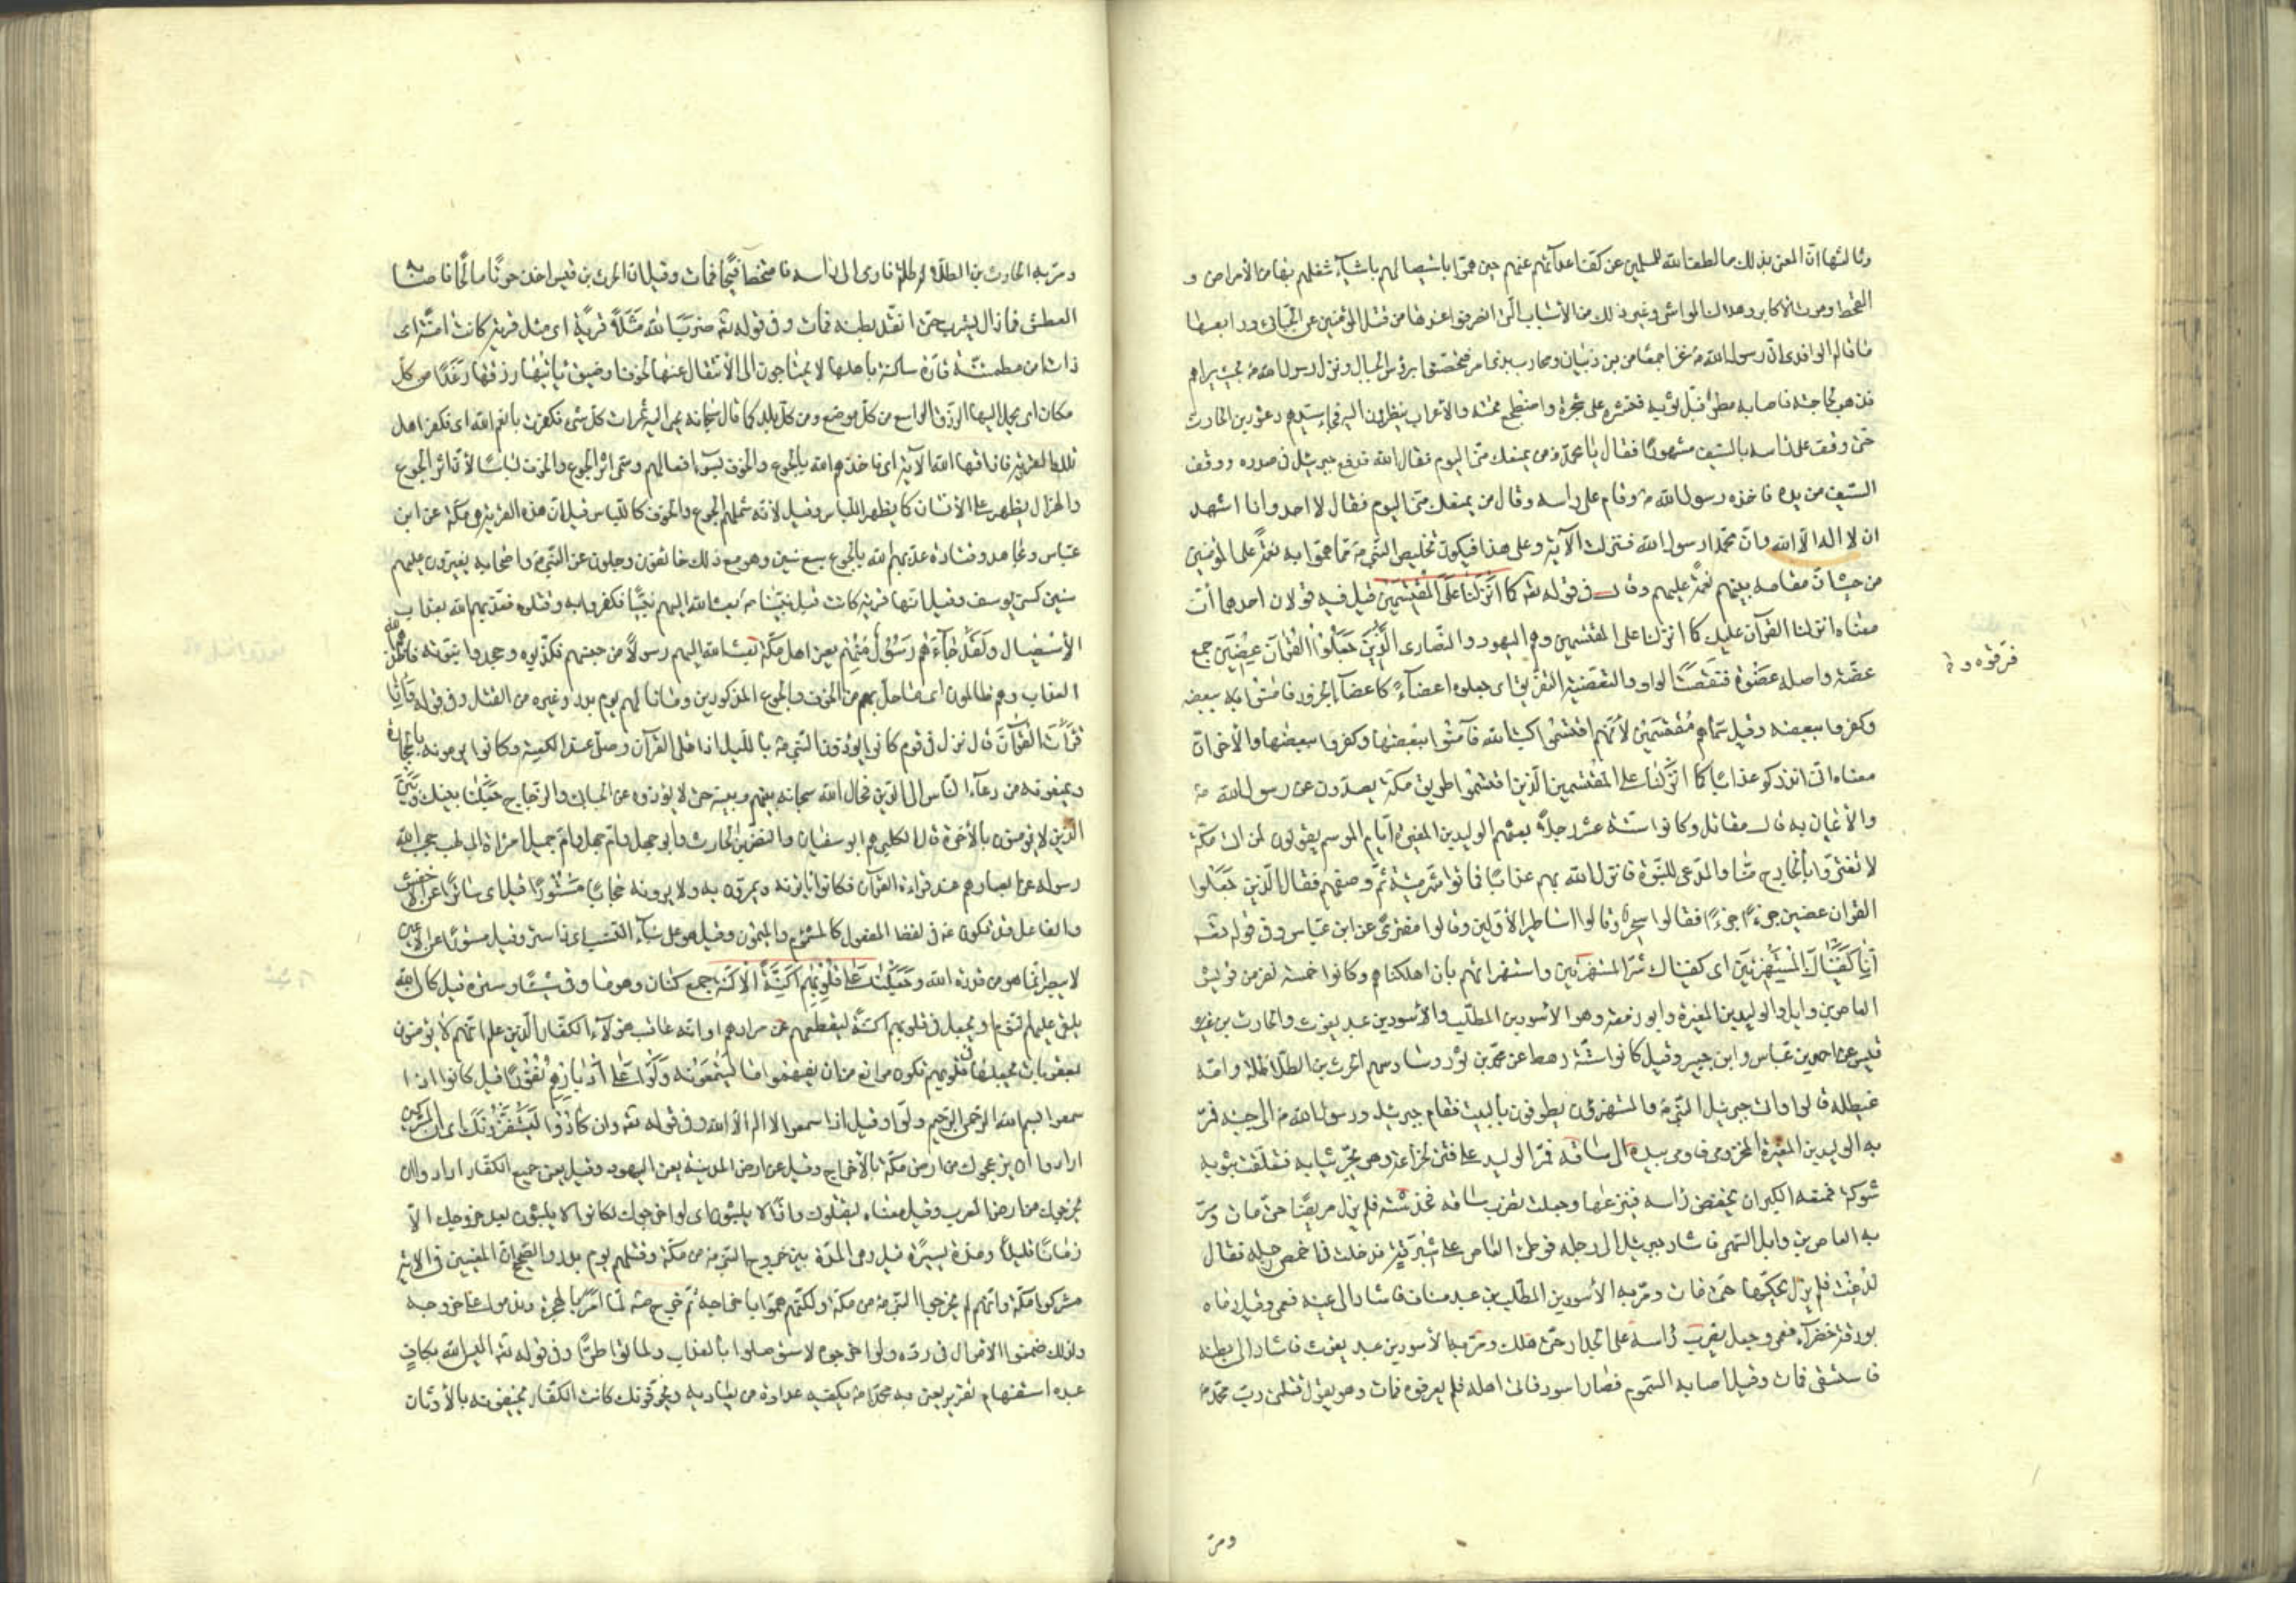 وثالثها انّ المعنى بذلك ما لطف الله للمسلمين عن كفّ اعدائهم عنهم حين همّوا باستيصالهم باشياء شغلهم بها من الأمراض و
القحط وموت الأكابر وهلاك المواشى وغير ذلك من الأسباب الّتى انصرفوا عندها من قتل المؤمنين عن الجبّائى ورابعها
ما قاله الواقدى انّ رسول الله ص غزا جمعًا من بنى ذبيان ومحارب بذى امر فتحصّنوا برؤس الجبال ونزل رسول الله ص بحيث يراهم
فذهب لحاجته فاصابه مطر فبلّ ثوبه فنشره على شجرة واضطجع تحته والأعراب ينظرون اليه فجاء سيّدهم دعثور بن الحارث
حتّى وقف على راسه بالسّيف مشهورًا فقال يا محمّد من يمنعك منّى اليوم فقال الله فدفع جبرئيل فى صدره ووقع
السّيف من يده فاخذه رسول الله ص وقام على راسه وقال من يمنعك منّى اليوم فقال لا احد وانا اشهد
ان لا اله الّا الله وانّ محمّدا رسول الله فنزلت الآية وعلى هذا فيكون تخليص النّبى ص ممّا همّوا به نعمةً على المؤمنين
من حيث انّ مقامه بينهم نعمةً عليهم وقال فى قوله تع كما انزلنا على المقتسمين قيل فيه قولان احدهما انّ
معناه انزلنا القرآن عليك كما انزلنا على المقتسمين وهم اليهود والنّصارى الّذين جعلوا القرآن عضين جمع
عضة واصله عضوة فنقصت الواو والتعضية التفريق اى جعلوه اعضاءً كاعضاء الجزور فامنوا ببعضه
فرّقوه و
وكفروا ببعضه وقيل سمّاهم مقتسمين لأنّهم اقتسموا كتب الله فآمنوا ببعضها وكفروا ببعضها والأخر انّ
معناه انّى انذركم عذابًا كما انزلنا على المقتسمين الّذين اقتسموا طريق مكّة يصدّون عن رسول الله ص
والأيمان به قال مقاتل وكانوا ستّة عشر رجلًا بعثهم الوليد بن المغيرة ايّام الموسم يقولون لمن اتى مكّة
لا تغترّوا بالخارج منّا والمدّعى للنّبوّة فانزل الله بهم عذابًا فماتوا شرّ ميتة ثمّ وصفهم فقال الّذين جعلوا
القران عضين جزءًا جزءًا فقالوا سحرة وقالوا اساطير الأوّلين وقالوا مفترًى عن ابن عبّاس وفى قوله تع
انّا كفيناك المستهزئين اى كفيناك شرّ المستهزئين واستهزائهم بان اهلكناهم وكانوا خمسة نفر من قريش
العاص بن وايل والوليد بن المغيرة وابو زمعة وهو الأسود بن المطّلب والأسود بن عبد يغوث والحارث بن
قيس عن ابن عبّاس وابن جبير وقيل كانوا ستّة رهط عن محمّد بن ثور وسادسهم الحرث بن الطّلاطلة وامّه
غيطلة قالوا واتى جبرئيل النّبى ص والمستهزؤن يطوفون بالبيت فقام جبرئيل ورسول الله ص الى جنبه فمرّ
به الوليد بن المغيرة المخزومى فاومى بيده الى ساقه فمرّ الوليد على قين لخزاعة وهو يجرّ ثيابه فتعلّقت بثوبه
شوكة فمنعه الكبر ان يخفض راسه فينزعها وجعلت تضرب ساقه فخدشته فلم يزل مريضًا حتّى مات ومرّ
به العاص بن وايل السّهمى فاشار جبرئيل الى رجله فوطئ العاص على شبرقة فدخلت فى اخمص رجله فقال
لدغت فلم يزل يحكّها حتّى مات ومرّ به الأسود بن المطّلب بن عبد مناف فاشار الى عينه فعمى وقيل رماه
بورقة خضراء فعمى وجعل يضرب راسه على الجدار حتّى هلك ومرّ به الأسود بن عبد يغوث فاشار الى بطنه
فاستسقى فمات وقيل اصابه السّموم فصار اسود فاتى اهله فلم يعرفوه فمات وهو يقول قتلنى ربّ محمّد ص
ومرّ
ومرّ به الحارث بن الطلاطلة فاومى الى راسه فامتخط قيحًا فمات وقيل انّ الحرث بن قيس اخذ حوتًا مالحًا فاصابه
العطش فما زال يشرب حتّى انقدّ بطنه فمات وفى قوله تع ضرب الله مثلًا قرية اى مثل قرية كانت امنة اى
ذات امن مطمئنّة قارّة ساكنة باهلها لا يحتاجون الى الأنتقال عنها لخوف او ضيق ياتيها رزقها رغدًا من كلّ
مكان اى يحمل اليها الرّزق الواسع من كلّ موضع ومن كلّ بلد كما قال سبحانه يجبى اليه ثمرات كلّ شئ فكفرت بانعم الله اى فكفر اهل
تلك القرية فاذاقها الله الآية اى فاخذهم الله بالجوع والخوف بسوء افعالهم وسمّى اثر الجوع والخوف لباسًا لأنّ اثر الجوع
والهزال يظهر على الأنسان كما يظهر اللّباس وقيل لأنّه شملهم الجوع والخوف كاللّباس قيل انّ هذه القرية هى مكّة عن ابن
عبّاس ومجاهد وقتادة عذّبهم الله بالجوع سبع سنين وهم مع ذلك خائفون وجلون عن النّبى ص واصحابه يغيرون عليهم
سنين كسنى يوسف وقيل انّها قرية كانت قبل نبيّنا ص بعث الله اليهم نبيًّا فكفروا به وقتلوه فعذّبهم الله بعذاب
الأستيصال ولقد جاءهم رسول منهم يعنى اهل مكّة بعث الله اليهم رسولًا من جنسهم فكذّبوه وجحدوا نبوّته فاخذهم
العذاب وهم ظالمون اى ما حلّ بهم من الخوف والجوع المذكورين وما نالهم يوم بدر وغيره من القتل وفى قوله فاذا
قرات القرآن قال نزل فى قوم كانوا يؤذون النّبى ص باللّيل اذا تلى القرآن وصلّى عند الكعبة وكانوا يرمونه بالحجارة
ويمنعونه من دعاء النّاس الى الدّين فحال الله سبحانه بينهم وبينه حتّى لا يؤذوه عن الجبائى والزجاج جعلنا بينك وبين
الّذين لا يؤمنون بالأخرة قال الكلبى هم ابو سفيان والنضر بن الحارث وابو جهل وامّ جميل امراة ابى لهب حجب الله
رسوله عن ابصارهم عند قراءة القرآن فكانوا ياتونه ويمرّون به ولا يرونه حجابًا مستورًا قيل اى ساترًا عن الأخفش
والفاعل قد يكون فى لفظ المفعول كالمشؤم والميمون وقيل هو على بناء النسب اى ذا ستر وقيل مستورًا عن الأعين
لا يبصر انّما هو من قدرة الله وجعلنا على قلوبهم اكنّة الأكنّة جمع كنان وهو ما وقى شيئًا وستره قيل كان الله
يلقى عليهم النّوم او يجعل فى قلوبهم اكنّة ليقطعهم عن مرادهم او انّه عاقب هؤلاء الكفّار الّذين علم انّهم لا يؤمنون
بعقوبات يجعلها فى قلوبهم تكون موانع من ان يفهموا ما يستمعونه ولّوا على ادبارهم نفورًا قيل كانوا اذا
سمعوا بسم الله الرّحمن الرّحيم ولّوا وقيل اذا سمعوا لا اله الّا الله وفى قوله تع وان كادوا ليستفزّونك اى انّ المشركين
ارادوا ان يزعجوك من ارض مكّة بالأخراج وقيل عن ارض المدينة يعنى اليهود وقيل يعنى جميع الكفّار ارادوا ان
يخرجوك من ارض العرب وقيل معناه ليقتلوك واذًا لا يلبثون اى لو اخرجوك لكانوا لا يلبثون بعد خروجك الّا
زمانًا قليلًا ومدّة يسيرة قيل وهى المدّة بين خروج النّبى ص من مكّة وقتلهم يوم بدر والصّحيح انّ المعنيين فى الاية
مشركوا مكّة وانّهم لم يخرجوا النّبى ص من مكّة ولكنّهم همّوا باخراجه ثمّ خرج ص لمّا امر بالهجرة وندموا على خروجه
ولذلك ضمنوا الاموال فى ردّه ولو اخرجوه لاستوصلوا بالعذاب ولماتوا طرًّا وفى قوله تع اليس الله بكاف
عبده استفهام تقرير يعنى به محمّدا ص يكفيه عداوة من يعاديه ويخوّفونك كانت الكفّار يخيفونه بالأوثان